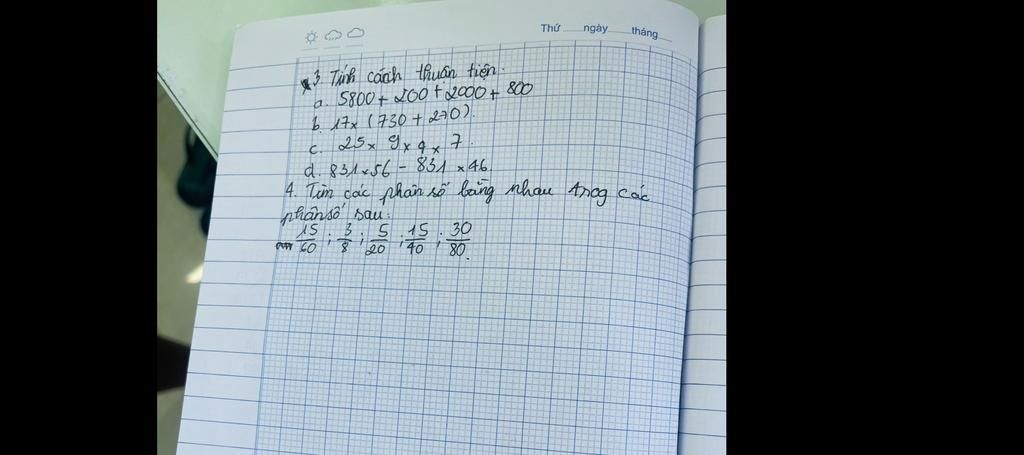 Thứ ngày tháng
3. Tính cách thuận tiện.
a. 5800 + 200 + 2000 + 800
b. 17 x (730 + 270).
c. 25 x 9 x 4 x 7.
d. 831 x 56 - 831 x 46.
4. Tìm các phân số bằng nhau trog các
phân số sau:
15/60 ; 3/8 ; 5/20 ; 15/40 ; 30/80.